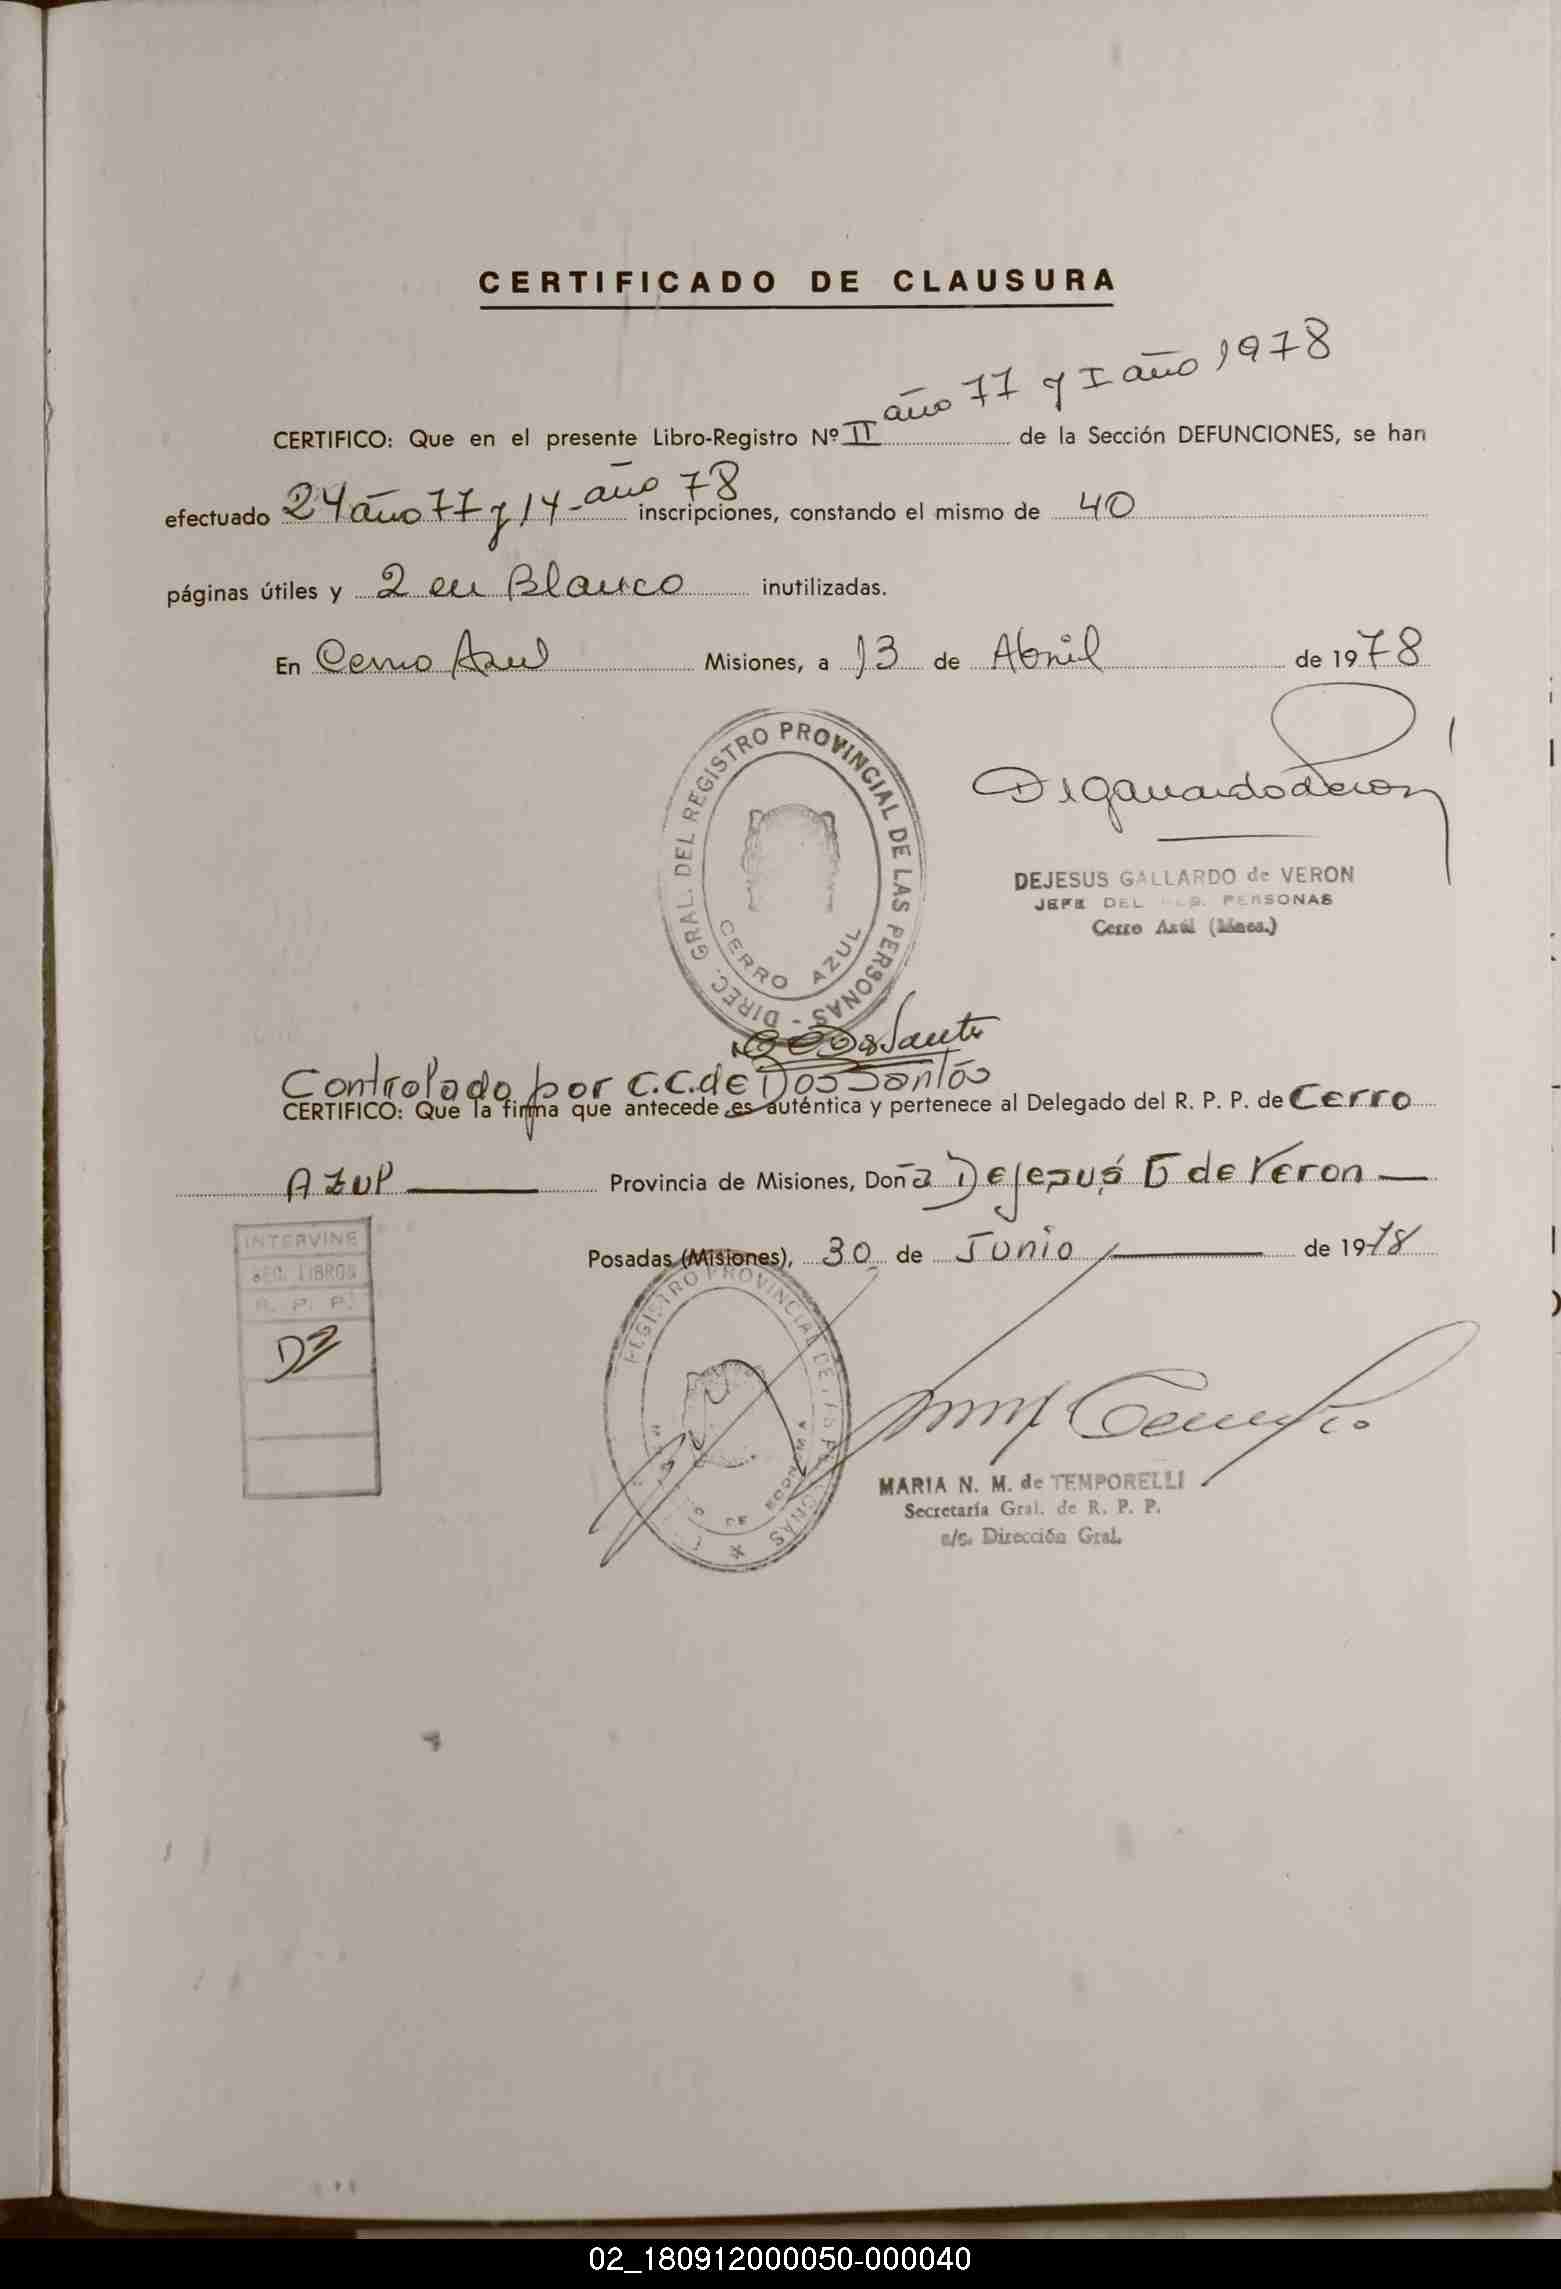 CERTIFICADO DE CLAUSURA
año 77 y I año 1978
CERTIFICO: Que en el presente Libro-Registro Nº II de la Sección DEFUNCIONES, se han
efectuado 24 año 77 y 14 - año 78 inscripciones, constando el mismo de 40
páginas útiles y 2 en Blanco inutilizadas.
En Cerro Azul Misiones, a 13 de Abril de 1978
DIREC. GRAL. DEL REGISTRO PROVINCIAL DE LAS PERSONAS -
CERRO AZUL
DEJESUS GALLARDO de VERON
JEFE DEL REG. PERSONAS
Cerro Azúl (Mnes.)
Controlado por C.C. de Dos Santos
CERTIFICO: Que la firma que antecede es auténtica y pertenece al Delegado del R. P. P. de Cerro
Azul Provincia de Misiones, Doña Dejesús G de Veron
Posadas (Misiones), 30 de Junio de 1978
INTERVINE
SEC. LIBROS
R. P. P.
REGISTRO PROVINCIAL DE LAS PERSONAS
DE ECONOMIA
MARIA N. M. de TEMPORELLI
Secretaría Gral. de R. P. P.
a/c. Dirección Gral.
02_180912000050-000040